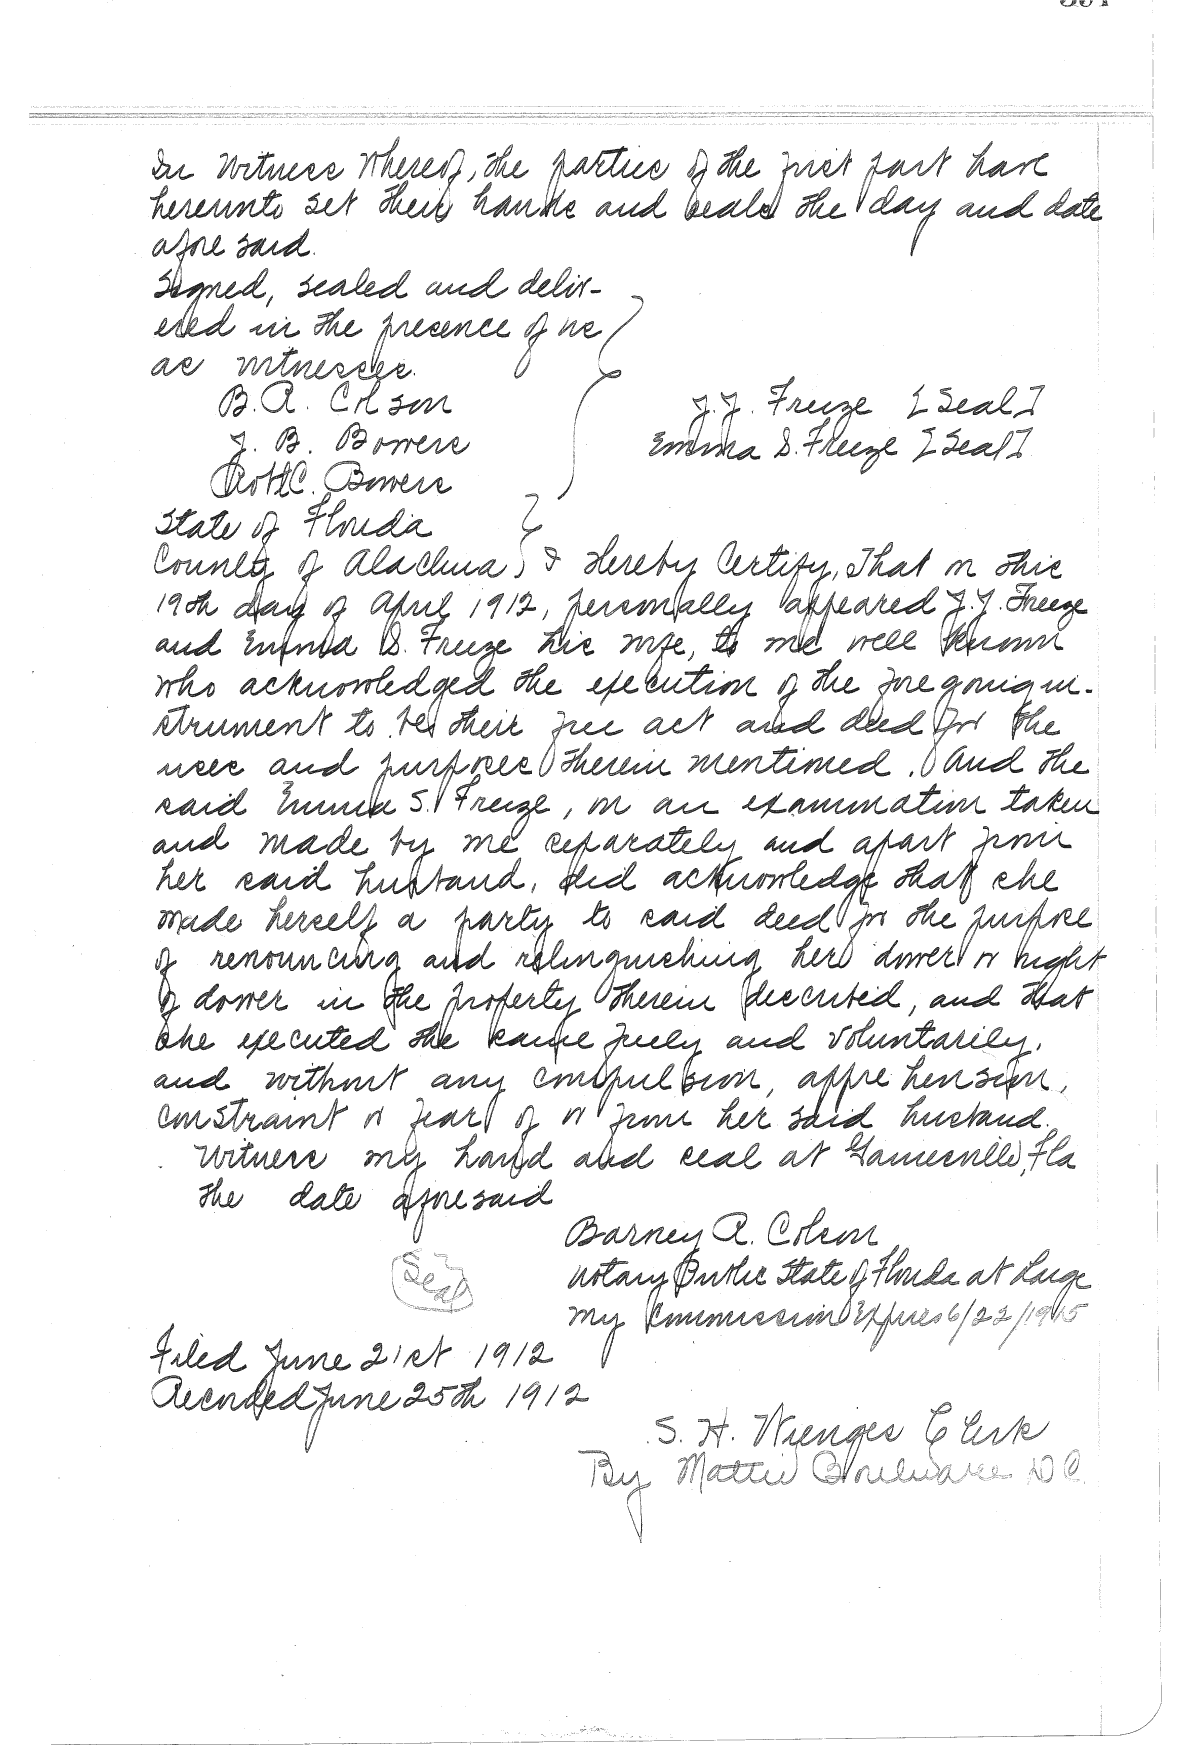 In Witness Whereof, the parties of the first part have
hereunto set their hands and seals the day and date
aforesaid.
Signed, sealed and deliv-
ered in the presence of us
as witnesses.
B. A. Colson
J. J. Freeze [Seal]
J. B. Bowers
Emma S. Freeze [Seal]
Robt C. Bowers
State of Florida
County of Alachua, I Hereby Certify, That on this
19th day of April 1912, personally appeared J. J. Freeze
and Emma S. Freeze his wife, to me well known
who acknowledged the execution of the foregoing in-
strument to be their free act and deed for the
uses and purposes therein mentioned. And the
said Emma S. Freeze, on an examination taken
and made by me separately and apart from
her said husband, did acknowledge that she
made herself a party to said deed for the purpose
of renouncing and relinquishing her dower or right
of dower in the property therein described, and that
she executed the same freely and voluntarily,
and without any compulsion, apprehension,
constraint or fear of or from her said husband.
Witness my hand and seal at Gainesville, Fla
the date aforesaid
Barney A. Colson
Seal
Notary Public State of Florida at Large
My Commission Expires 6/22/1915
Filed June 21st 1912
Recorded June 25th 1912
S. H. Wienges Clerk
By Mattie Boulware D C.